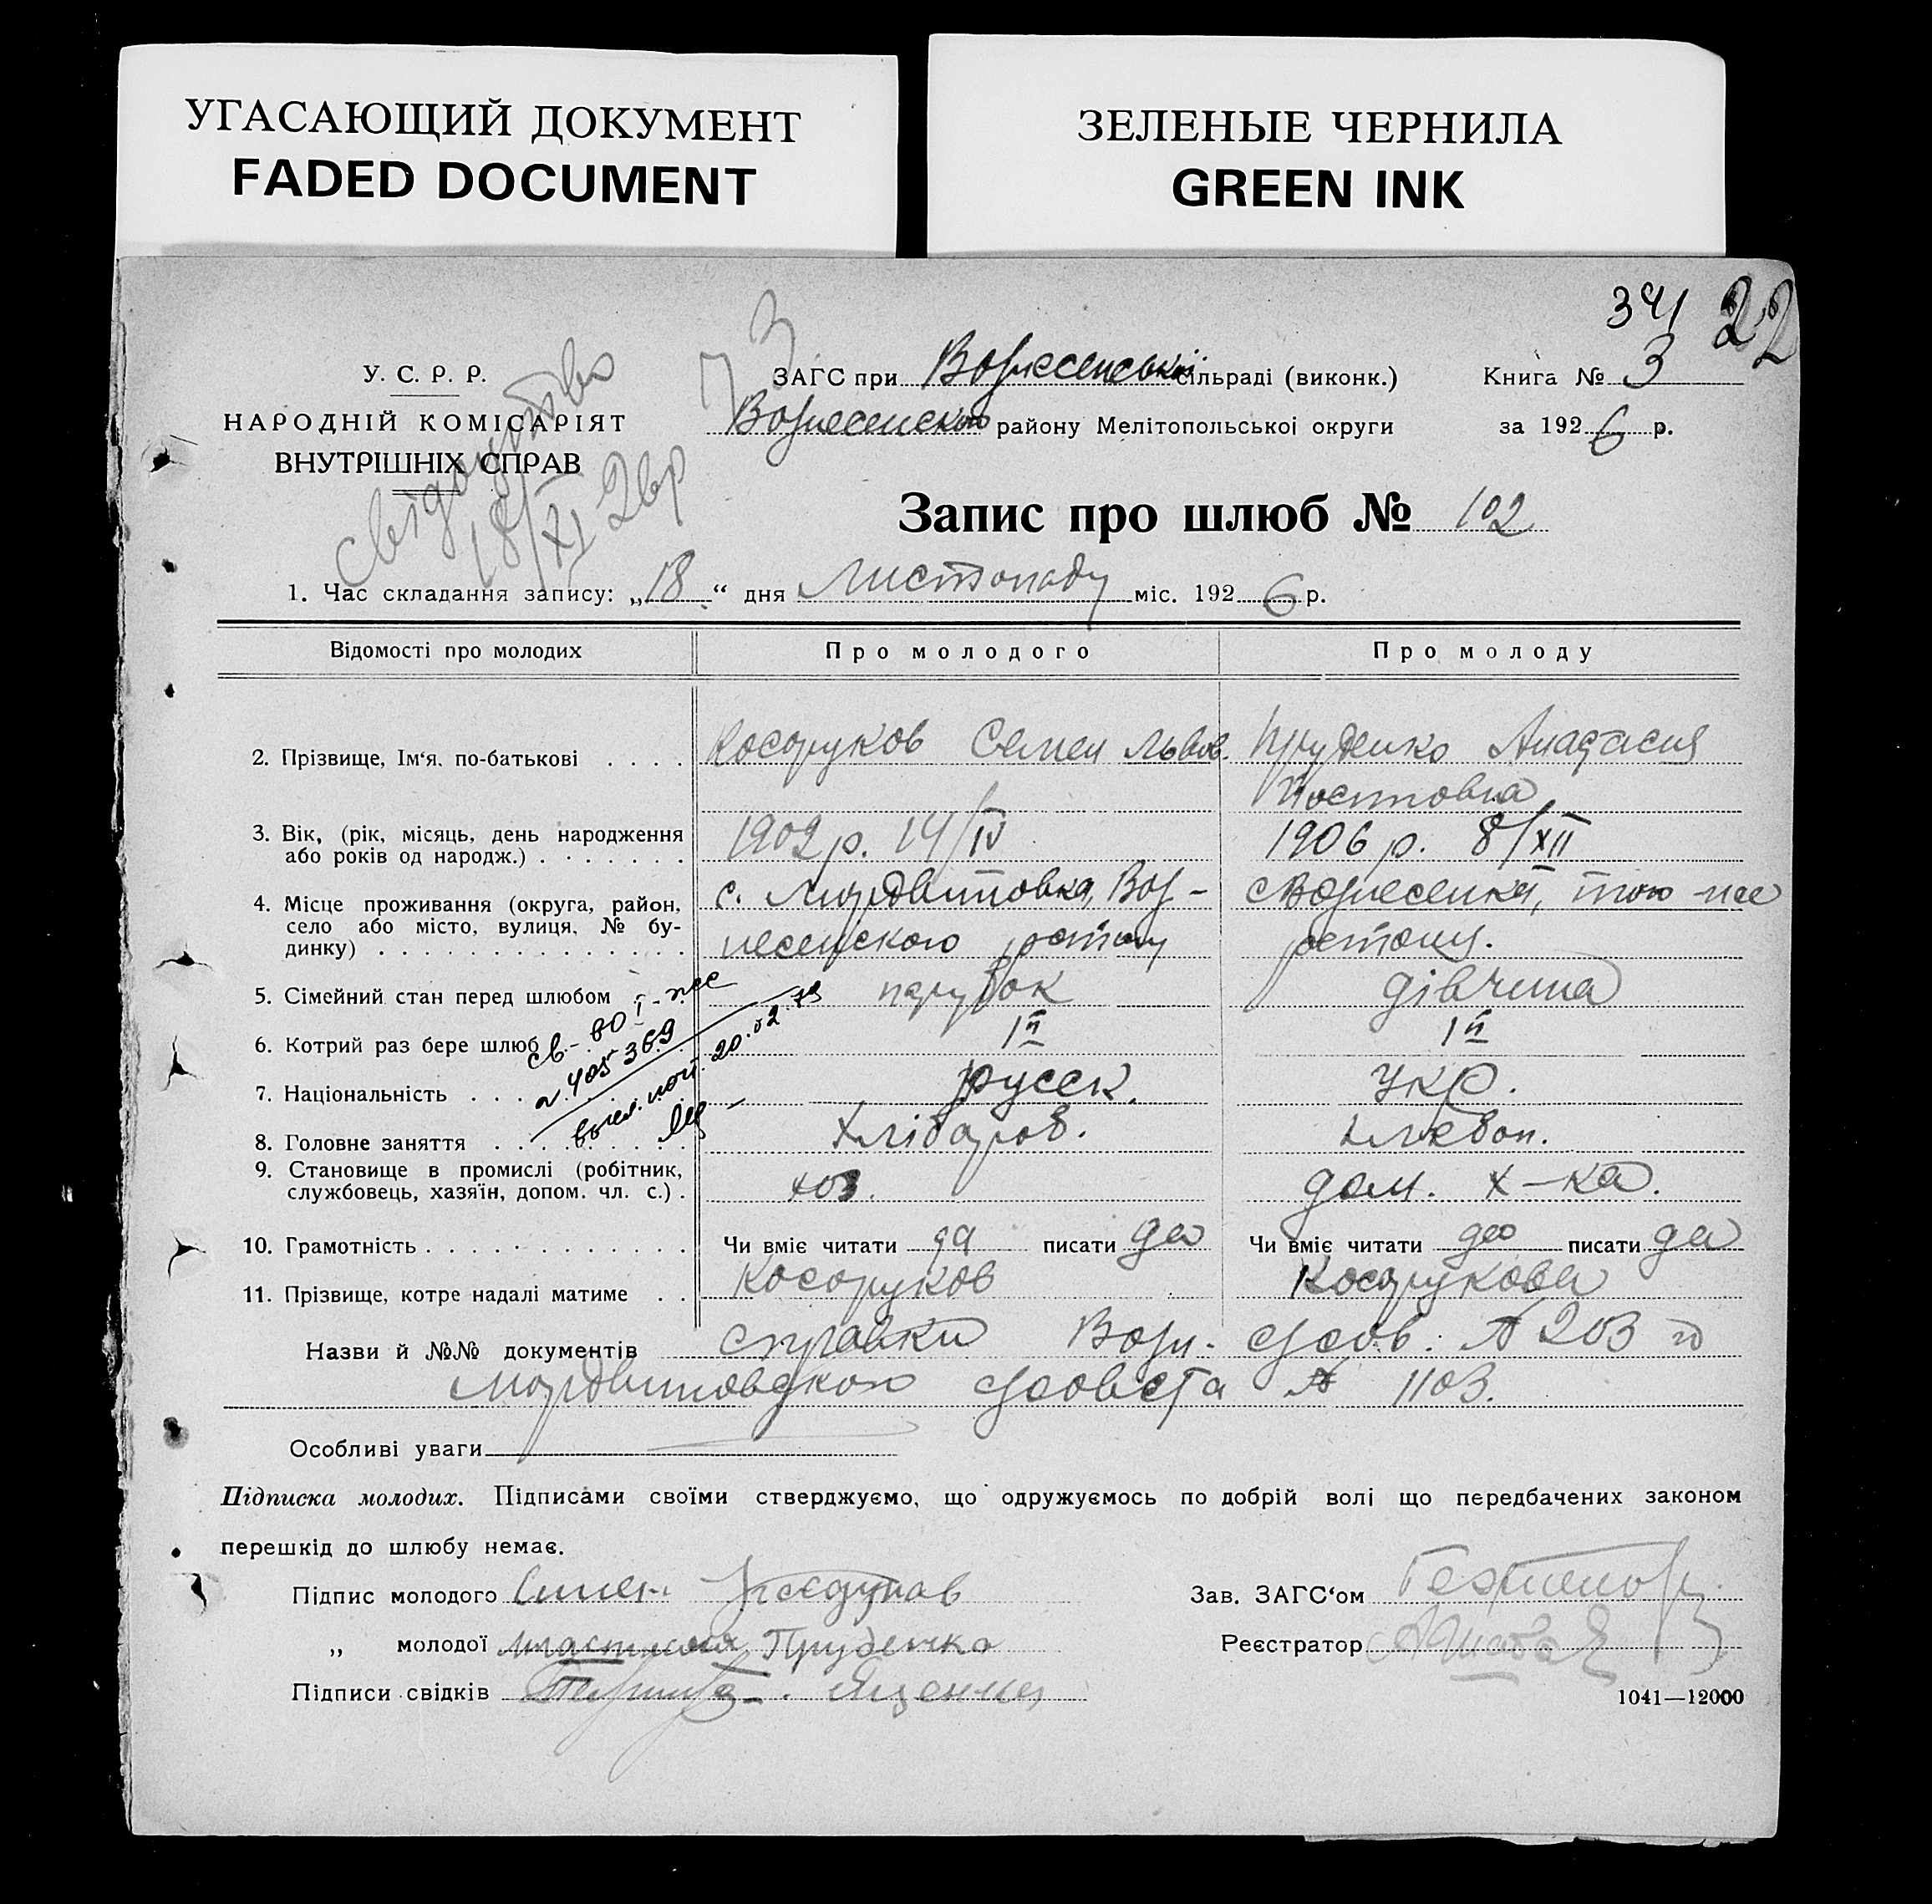 УГАСАЮЩИЙ ДОКУМЕНТ
FADED DOCUMENT
ЗЕЛЕНЫЕ ЧЕРНИЛА
GREEN INK
341 22
3
У. С. Р. Р.
НАРОДНІЙ КОМІСАРІЯТ
ВНУТРІШНІХ СПРАВ
свідоцтво
18/XI 26р
ЗАГС при Вознесенській сільраді (виконк.)
Вознесенского району Мелітопольської округи
Книга № 3
за 1926 р.
Запис про шлюб № 102
1. Час складання запису: „18“ дня Листопаду міс. 1926 р.
Відомості про молодих Про молодого Про молоду
2. Прізвище, Ім'я, по-батькові . . . . Косоруков Семен Львов. Пруденко Анастасия
3. Вік, (рік, місяць, день народження 1902 р. 14/IV 1906 р. 8/XII
або років од народж.) . . . . . . .
4. Місце проживання (округа, район, с. Мордвиновка, Воз-
село або місто, вулиця, № бу- несенского району
динку) . . . . . . . . . . . . . . с Вознесенка, того-же
району.
5. Сімейний стан перед шлюбом парубок дівчина
6. Котрий раз бере шлюб Iй Iй
7. Національність . . . русск. укр.
8. Головне заняття . . . . . . . . Хлібороб.
9. Становище в промислі (робітник, хоз. дом. х-ка.
службовець, хазяїн, допом. чл. с.) .
св-во I-
405369
20.02.73
10. Грамотність . . . . . . . . . . . . Чи вміє читати да писати да Чи вміє читати да писати да
11. Прізвище, котре надалі матиме . . Косоруков Косорукова
Назви й №№ документів справки Возн. с/сов. № 203 и
Мордвиновского с/совета № 1103.
Особливі уваги
Підписка молодих. Підписами своїми стверджуємо, що одружуємось по добрій волі що передбачених законом
перешкід до шлюбу немає.
Підпис молодого Зав. ЗАГС'ом
„ молодої Пруденко Реєстратор
Підписи свідків Яценко
1041—12000